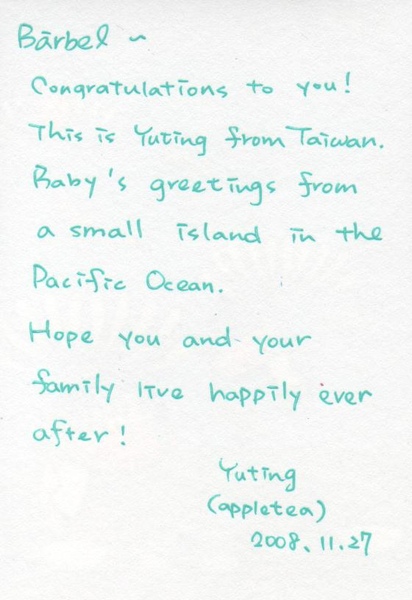 Bärbel ~
Congratulations to you!
This is Yuting from Taiwan.
Baby's greetings from
a small island in the
Pacific Ocean.
Hope you and your
family live happily ever
after!
Yuting
(appletea)
2008.11.27